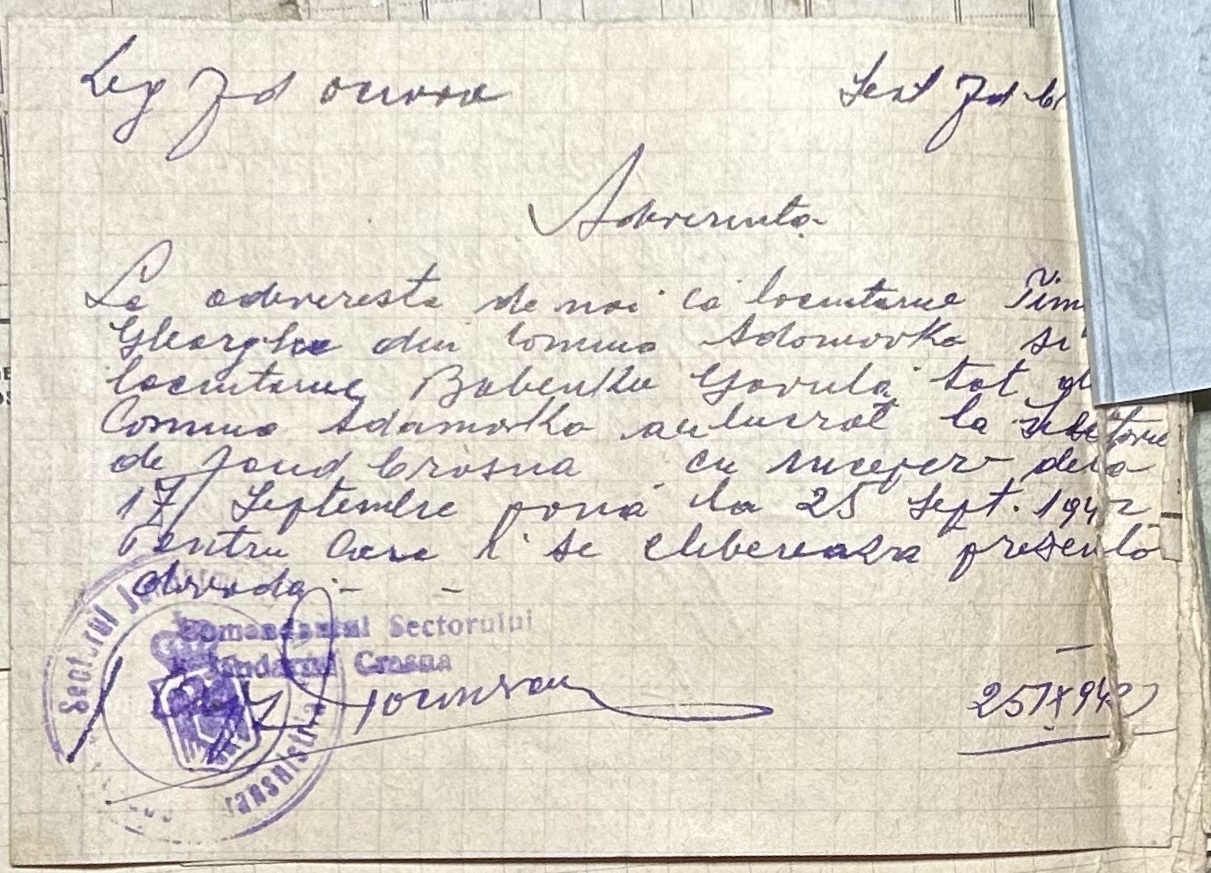 Leg Jd
Sect Jd
Adeverinta
Se adevereste de noi că locuitorue Tim
Gheorghe din Comuna Adamovka si
locuitorue Babenku Gavrilă tot
Comuna Adamovka au lucrat la
de Crosna cu incepere dela
17 Septembre pană la 25 Sept. 1942
Pentru Care i se elibereaza prezenta
dovada -
Comandantul Sectorului
Jandarmi Crosna
Sectorul
Transnistria
25/IX 942